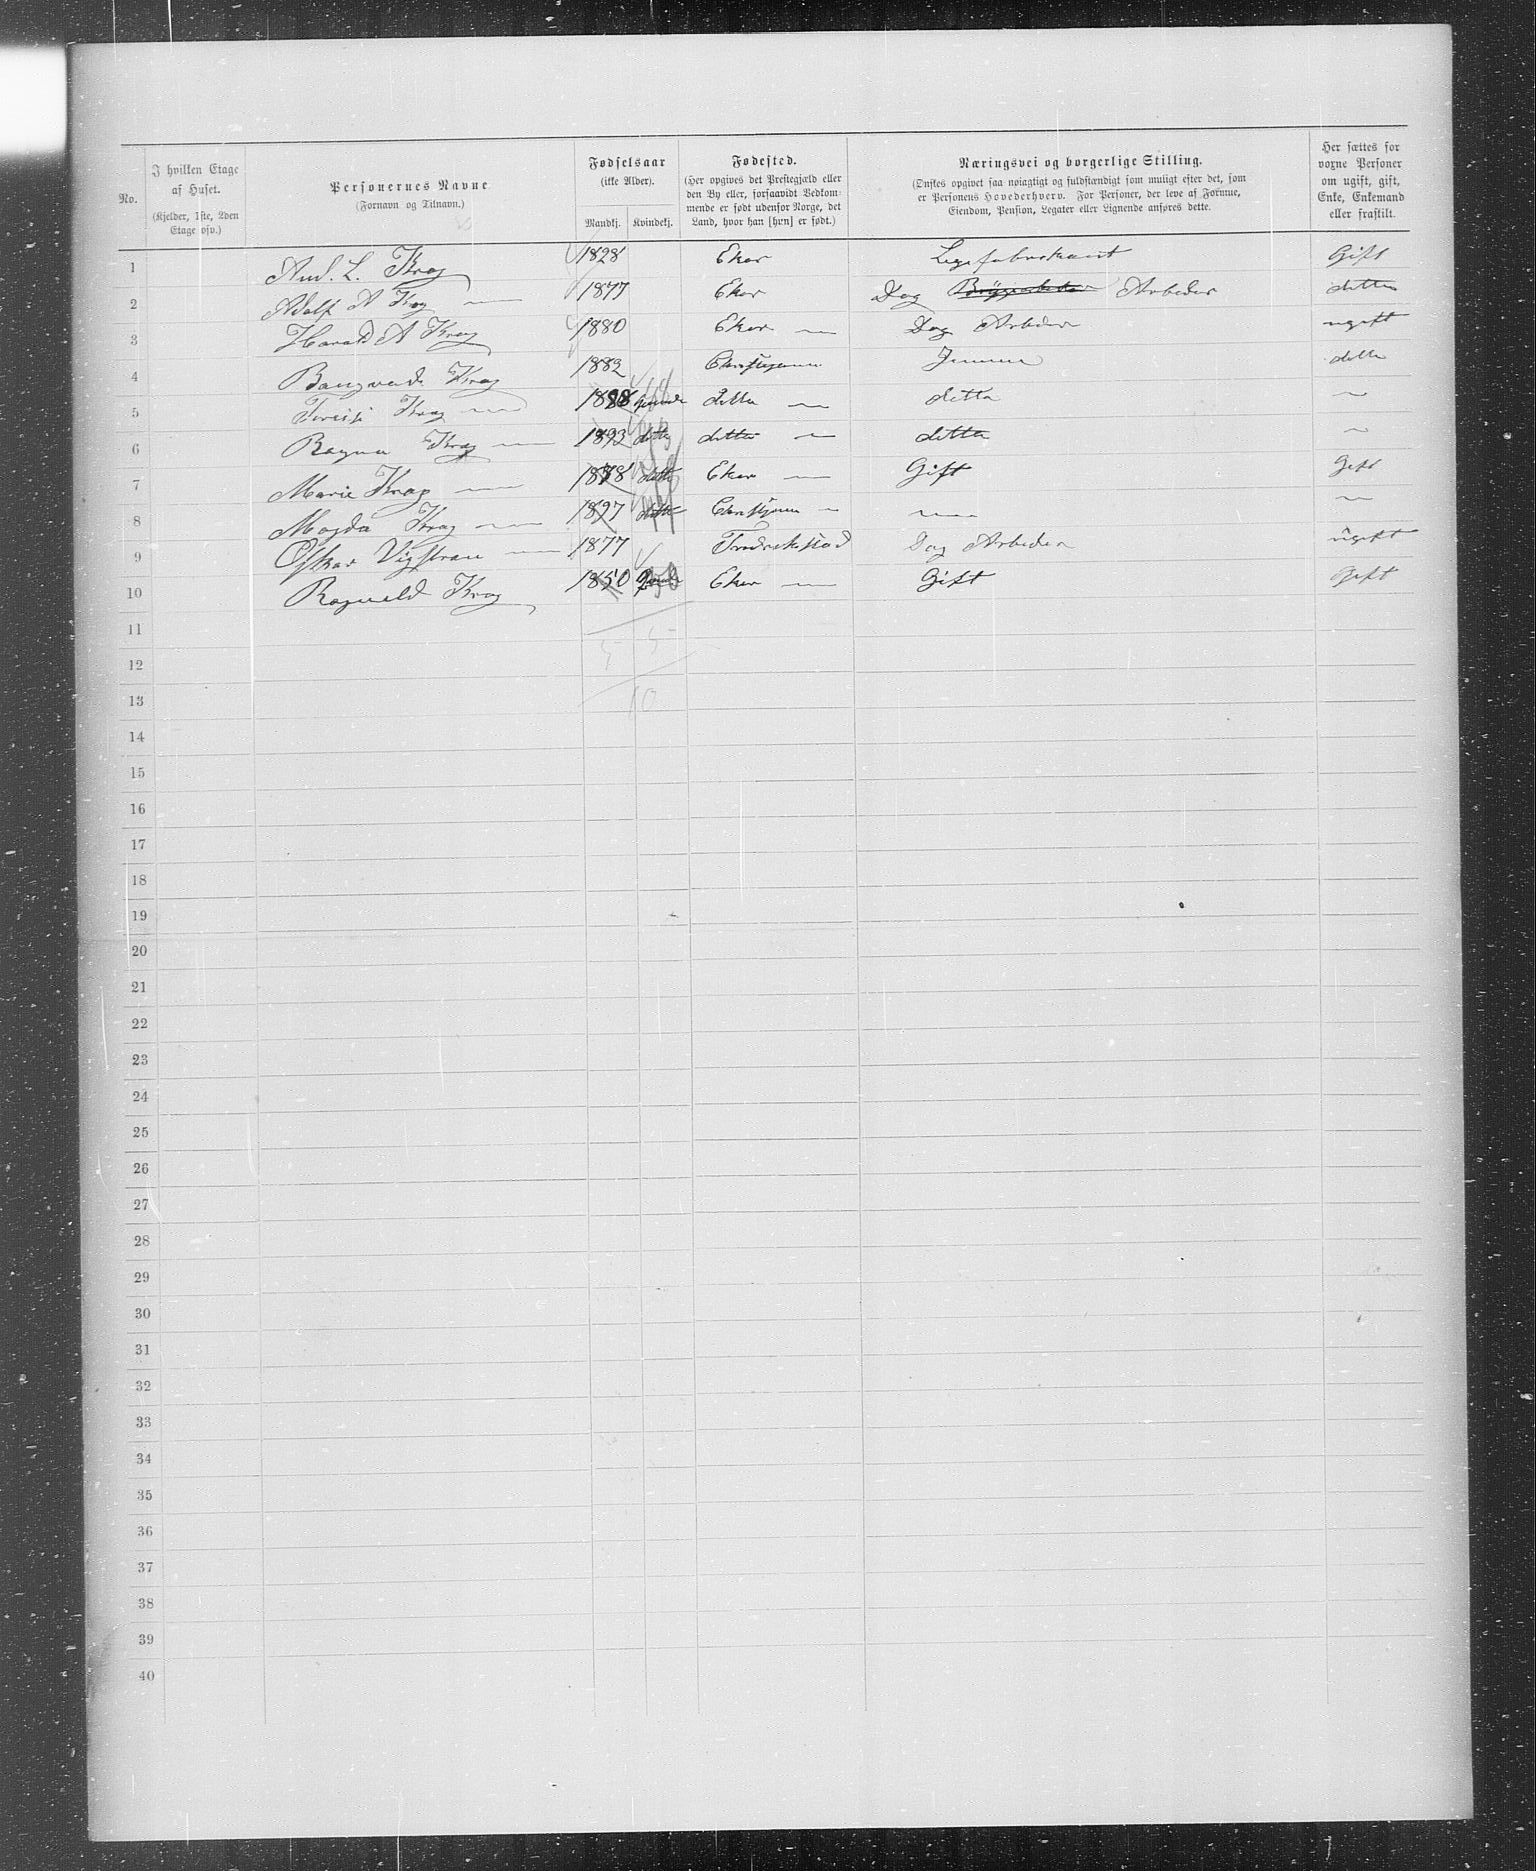 No.
I hvilken Etage af Huset.
(Kjelder, 1ste, 2den Etage osv.)
Personernes Navne
(Fornavn og Tilnavn.)
Fødselsaar
(ikke Alder).
Mandkj. Kvindekj.
Fødested.
(Her opgives det Prestegjæld eller den By eller, forsaavidt Vedkommende er født udenfor Norge, det Land, hvor han [hun] er født.)
Næringsvei og borgerlige Stilling.
(Ønskes opgivet saa nøiagtigt og fuldstændigt som muligt efter det, som er Personens Hovederhverv. For Personer, der leve af Formue, Eiendom, Pension, Legater eller Lignende anføres dette.
Her sættes for voxne Personer om ugift, gift, Enke, Enkemand eller fraskilt.
1 And. L. Krog 1828 Eker Gift
2 Adolf A Krog 1877 Eker Dag Arbeder ditto
3 Harald A Krog 1880 Eker Dag Arbeder ugift
4 Krog 1882 ditto
5 Krog 1888 68 ditto ditto
6 Ragna Krog 1893 ditto 93 ditto ditto
7 Marie Krog 1878 ditto 78 Eker Gift Gift
8 Magda Krog 1897 ditto 97
9 Oskar 1877 Fredrikstad Dag Arbeder ugift
10 Ragnvald Krog 1850 50 Eker Gift Gift
11
5 5
12
10
13
14
15
16
17
18
19
20
21
22
23
24
25
26
27
28
29
30
31
32
33
34
35
36
37
38
39
40